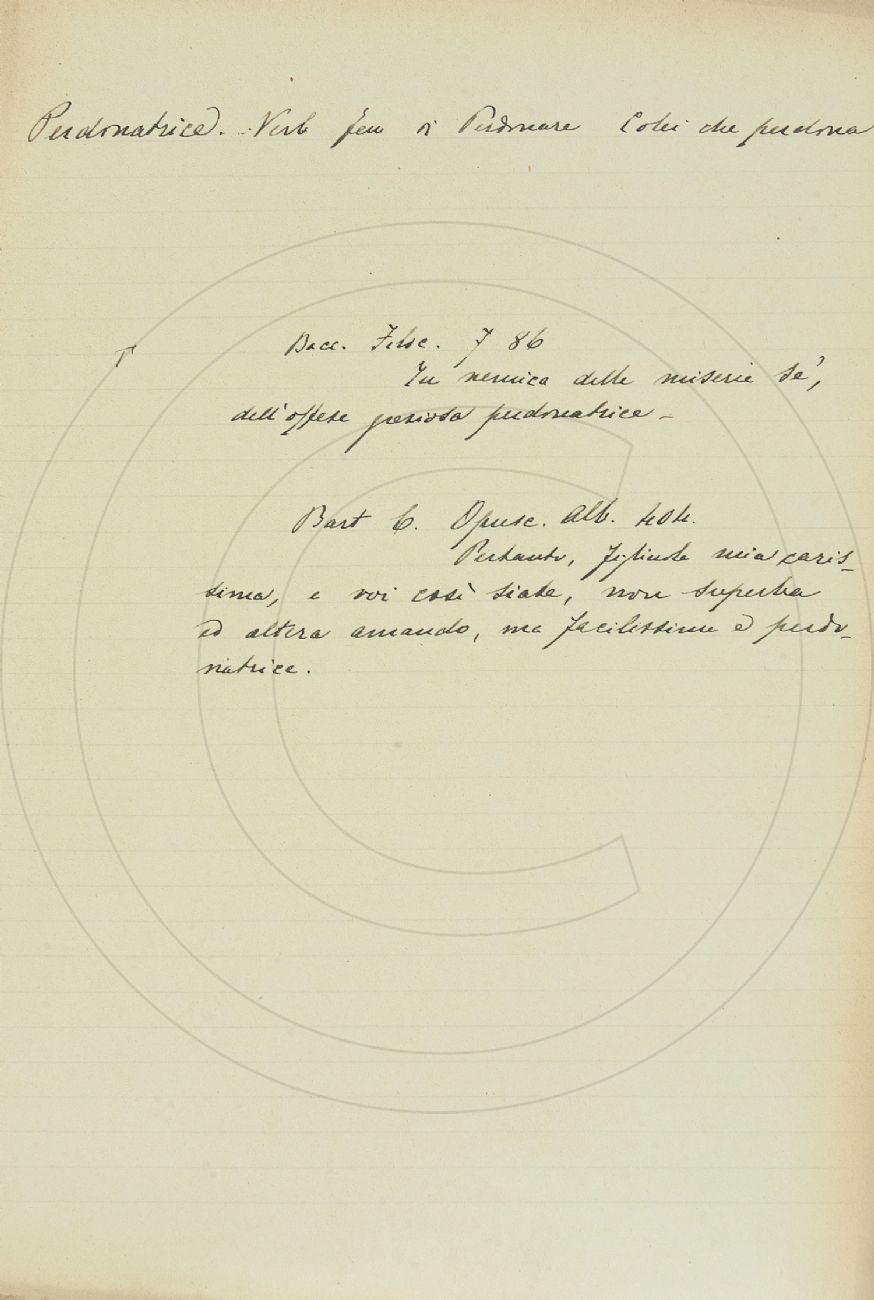 Perdonatrice. Verb fem di Perdonare Colei che perdona
T Bocc. Filoc. 7 86
Tu nemica delle miserie se',
dell'offese graziosa perdonatrice -
Bart C. Opusc. Alb. 404.
Pertanto, figliuola mia caris-
sima, e voi così siate, non superba
ed altera amando, ma facilissima e perdo-
natrice.